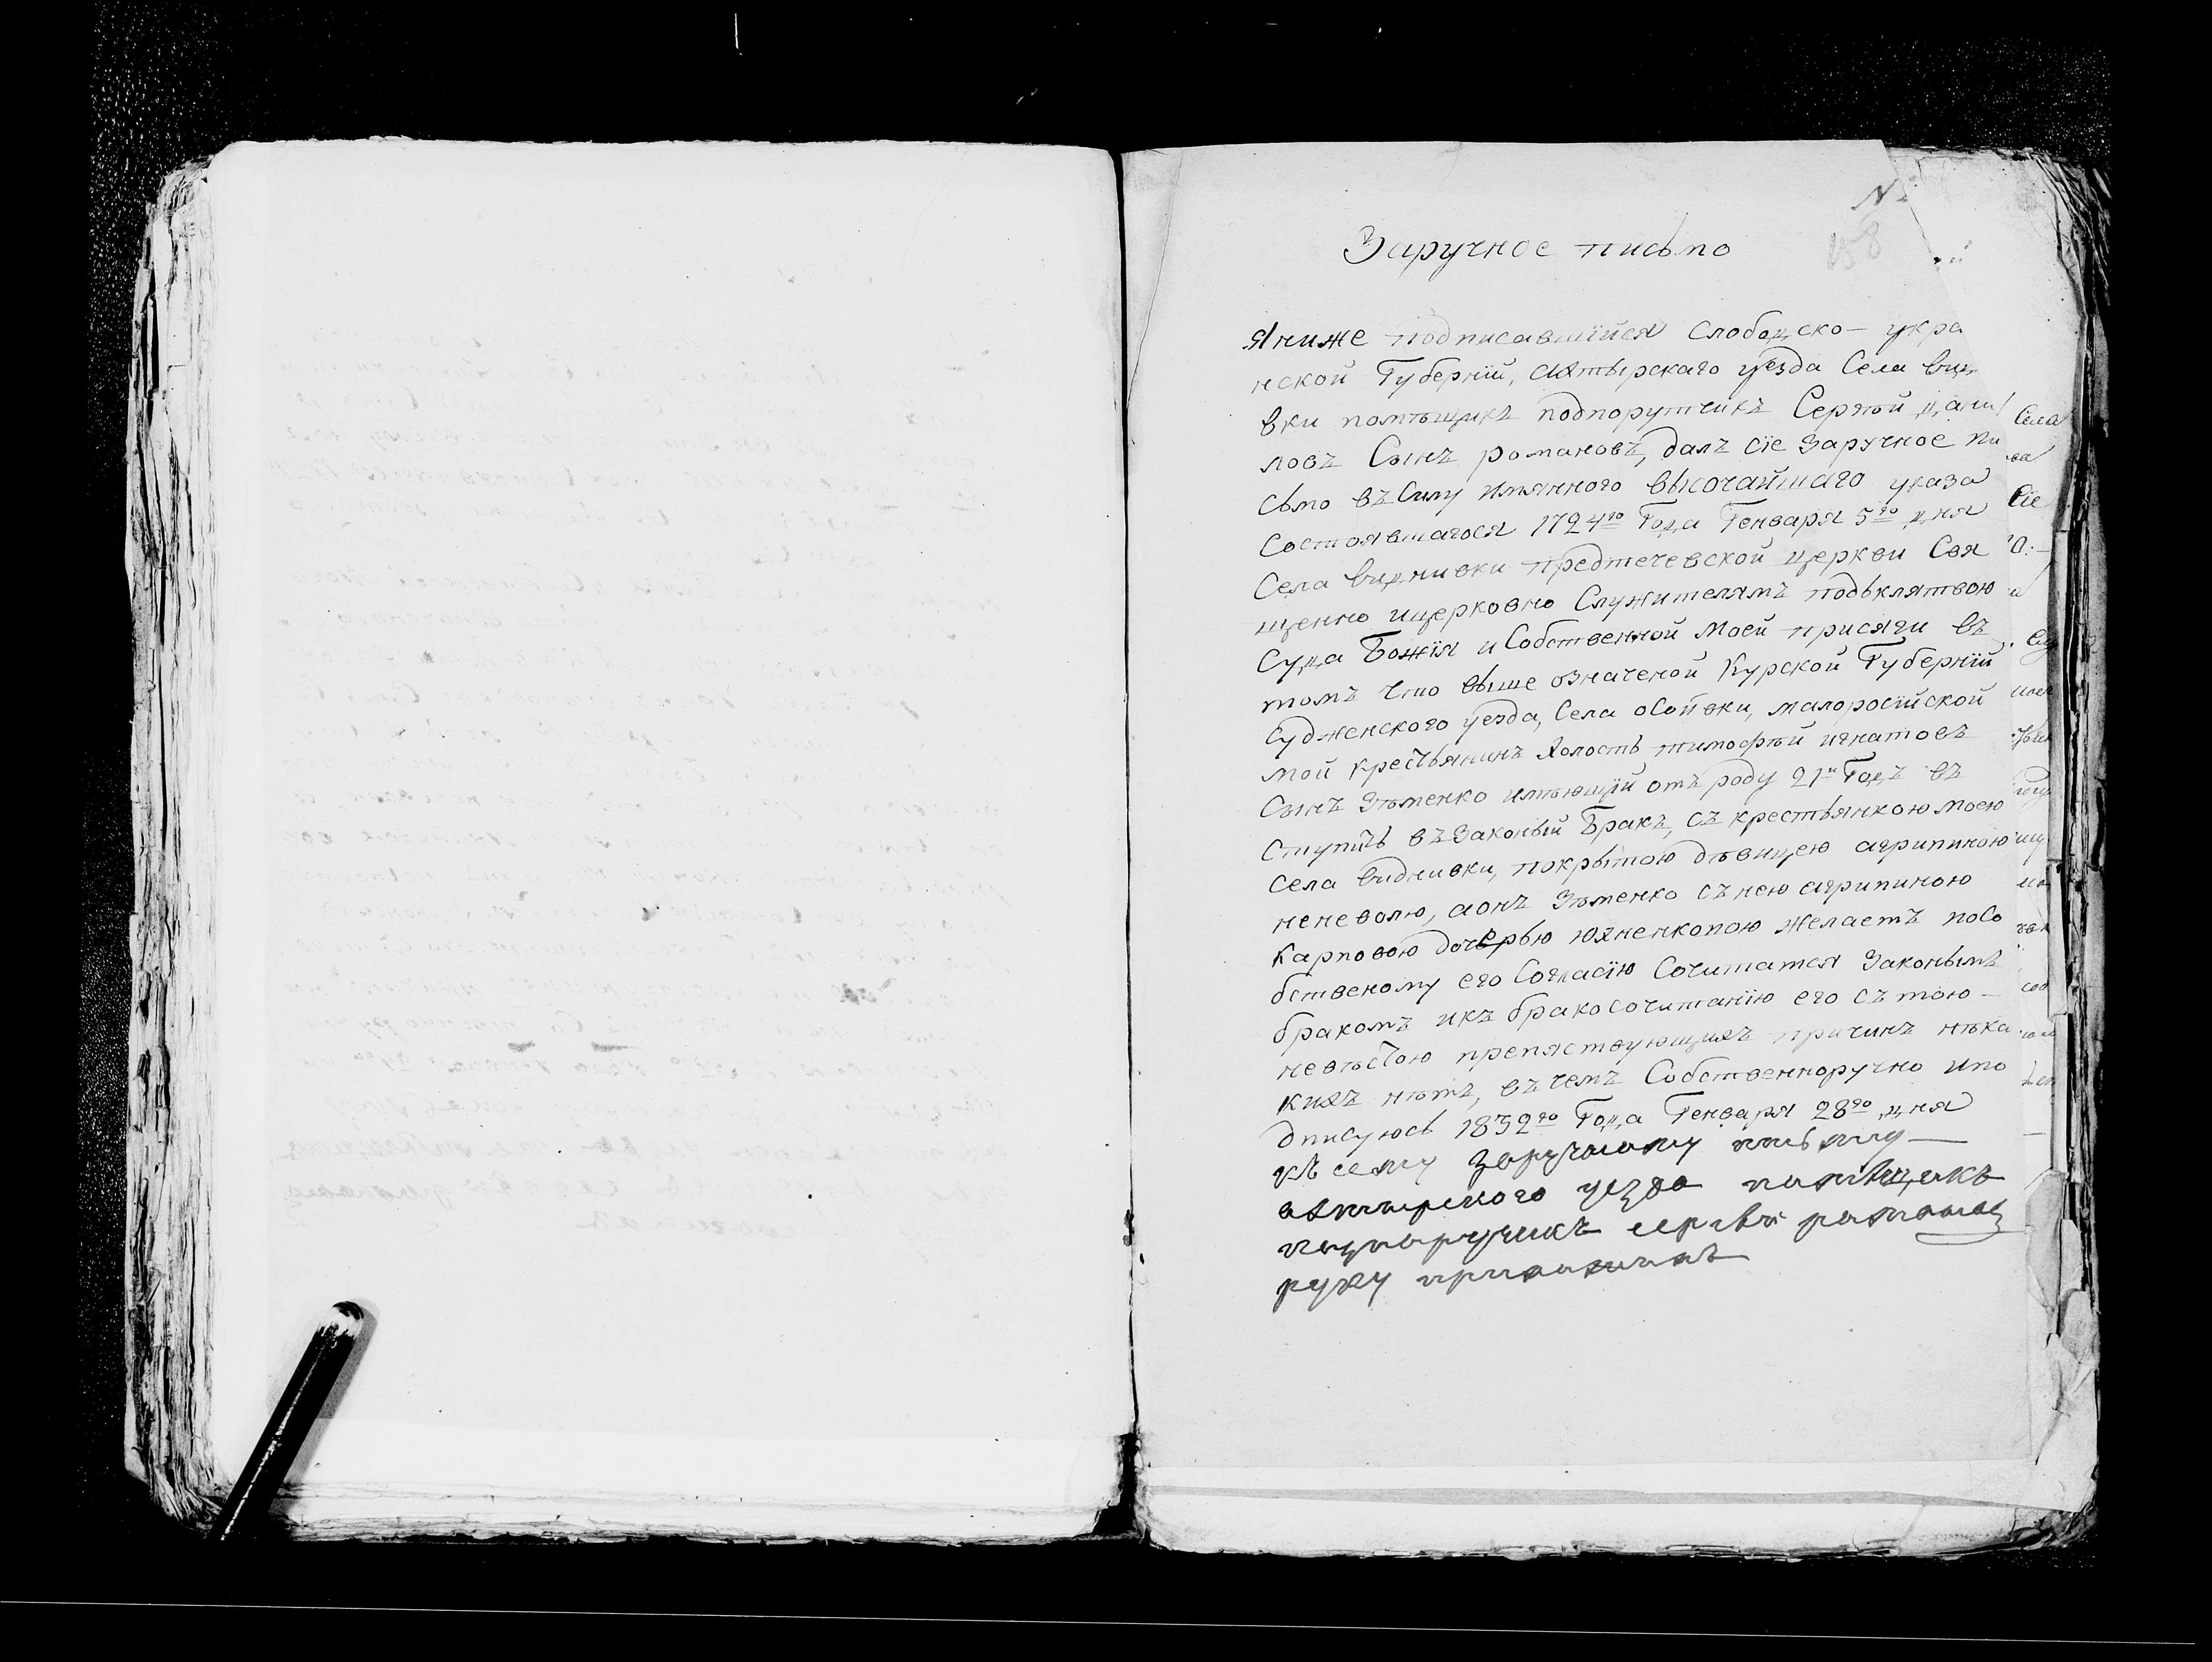 №
158
Заручное письмо
Я ниже подписавшійся Слободско- укра
нской Губерніи, Ахтырскаго уезда Села Видн
вки помѣщикъ подпорутчикъ Сергѣй Дани
ловъ Сынъ романовъ, далъ сіе Заручное пи
сьмо въ Силу имяннаго высочайшаго указа
Состоявшагося 1724го Года Генваря 5го дня
Села Виднивки предтечевской церкви Свя
щенно ицерковно Служителямъ подъклятвою
Суда Божія и Собственной моей присяги въ
томъ что выше означеной Курской Губерніи
Судженского уезда, Села осоевки, малоросійской
мой крестьянинъ Холость тимофѣй игнатовъ
Сынъ Зѣменко имѣющій отъ роду 21н Годъ въ
ступить въ Законый Бракъ, съ крестьянкою моею
села Виднивки, покрытою дѣвицею агрипиною
неневолю, аонъ Зѣменко съ нею агрипиною
Карповою дочерью юхненкопою желаетъ посо
бственому его Согласію Сочитатся Законымъ
бракомъ икъ бракосочитанію его съ тою-
невѣстою препяствующихъ причинъ нѣка
кихъ нѣтъ, въ чемъ Собственноручно ипо
дписуюсь 1832го Года Генваря 28го дня
къ сему заручному письму
ахтырского уезда помѣщикъ
подпоручикъ сергѣй романов
руку приложилъ
Села
Сіе